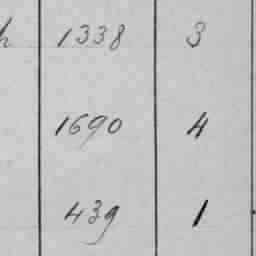 h 1338 3
1690 4
439 1